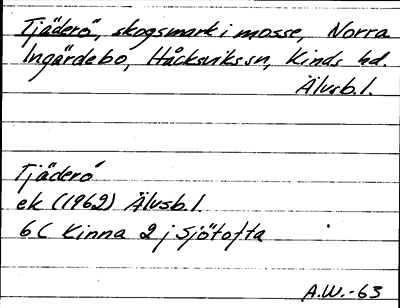 Tjäderö, skogsmark i mosse, Norra
Ingärdebo, Håcksvik ssn, Kinds hd.
Älvsb. l.
Tjäderö
ek (1962) Älvsb. l.
6C Kinna 2 j Sjötofta
A.W.-63